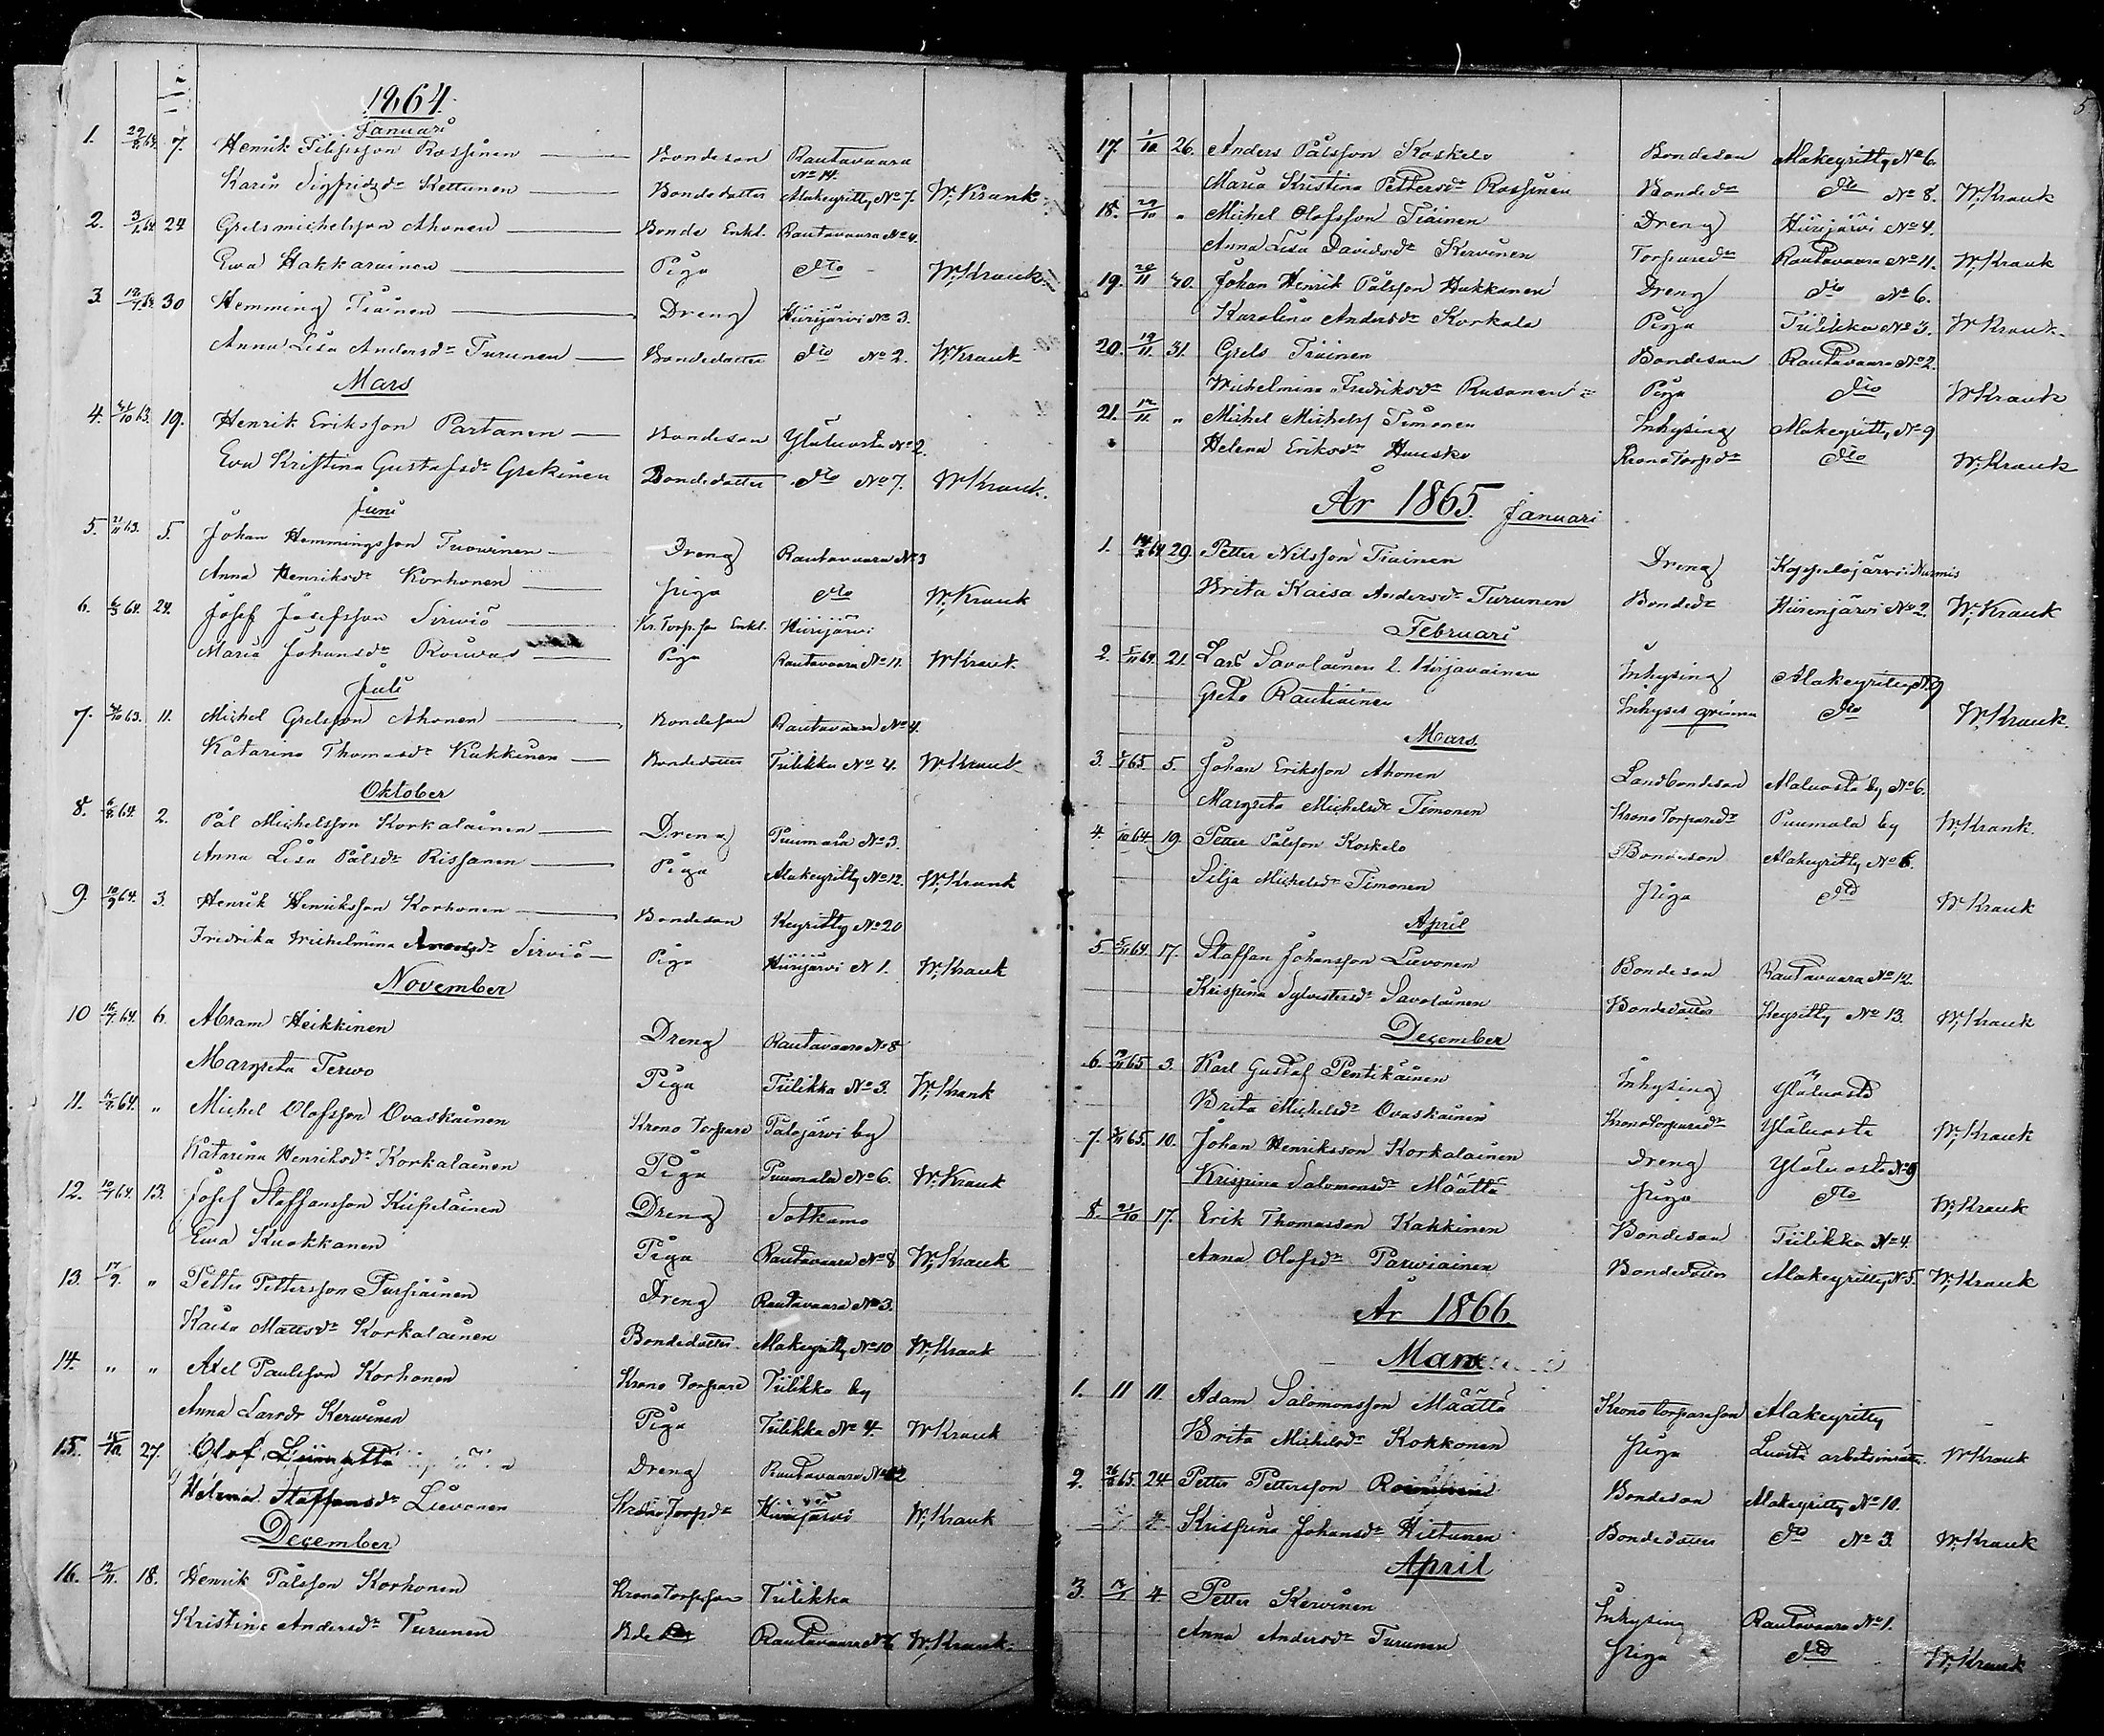 1864
Januari
1. 7. Henrik Filipsson Rossinen Bondeson Rautavaara No 14.
Karin Sigfridsdr Kettunen Bondedotter Alakeyritty No 7. W. Krank
2. 3/1 64 24 Grelsmichelsson Ahonen Bonde Enkl. Rautavaara No 4.
Ewa Hakkarainen Piga dto W. Krank
3. 30 Hemming Tiainen Dreng Hiirijärvi No 3.
Anna Lisa Andersdr Turunen Bondedotter dto No 2. W. Krank
Mars
4. 19. Henrik Eriksson Partanen Bondeson Yläluosta No 2.
Eva Kristina Gustafsdr Grekinen Bondedotter dto No 7. W Krank.
Juni
5. 21/11 63. 5. Johan Hemmingsson Tuovinen Dreng Rautavaara No 3
Anna Henriksdr Korhonen piga dto W. Krank
6. 6/3 64. 24. Josef Josefsson Sirviö Kr. Torp. son Enkl. Hiirijärvi
Maria Johansdr Rouvas Piga Rautavaara No 11. W Krank.
Juli
7. 11. Michel Grelsson Ahonen Bondeson Rautavaara No 4.
Katarina Thomasdr Kukkinen Bondedotter Tiilikka No 4. W. Krank
Oktober
8. 2. Pål Michelsson Korkalainen Dreng Puumala No 3.
Anna Lisa Pålsdr Rissanen Piga Alakeyritty No 12. W. Krank
9. 10/9 64. 3. Henrik Henriksson Korhonen Bondeson Keyritty No 20
Fredrika Wilhelmina Sirviö Piga Hiirijärvi N 1. W. Krank
November
10 6. Abram Heikkinen Dreng Rautavaara No 8
Margreta Terwo Piga Tiilikka No 3. W. Krank
11. " Michel Olofsson Ovaskainen Krono Torpare Palojärvi by
Katarina Henriksdr Korkalainen Piga Puumala No 6. W. Krank
12. 13. Josef Staffansson Kiiskeläinen Dreng Sotkamo
Ewa Kuokkanen Piga Rautavaara No 8 W. Krank
13. 17/9. " Petter Pettersson Pursiainen Dreng Rautavaara No 3.
Kaisa Mattsdr Korkalainen Bondedotter Alakeyritty No 10 W. Krank
14. " " Axel Paulsson Korhonen Krono Torpare Tiilikka by
Anna Larsdr Kerwinen Piga Tiilikka No 4. W Krank
15. 27. Olof Dreng Rautavaara
Helena Staffansdr Lievonen Krono Torpdr Hiirijärvi W. Krank
December
16. 12/11. 18. Henrik Pålsson Korhonen Kronotorpson Tiilikka
Kristina Andersdr Turunen Bde Rautavaara W. Krank
5
17. 1/10 26. Anders Pålsson Koskelo Bondeson Alakeyritty No 6.
Maria Kristina Pettersdr Rossinen Bondedr dto No 8. W. Krank
18. 29/10 " Michel Olofsson Tiainen Dreng Hiirijärvi No 4.
Anna Lisa Davidsdr Kervinen Torparedr Rautavaara No 11. W. Krank
19. 20/11 30. Johan Henrik Pålsson Hukkanen Dreng dto No 6.
Karolina Andersdr Korkala Piga Tiilikka No 3. W Krank
20. 19/11. 31. Grels Tiainen Bondeson Rautavaara No 2.
Wilhelmina Fredriksdr Rusanen Piga dto W Krank
21. 12/11 " Michel Michels Timonen Inhysing Alakeyritty No 9
Helena Eriksdr Huusko Krono Torpdr dto W. Krank
År 1865. Januari
1. 29. Petter Nilsson Tiainen Dreng Koppelojärvi Nurmis
Brita Kaisa Andersdr Turunen Bondedr Hiirenjärvi No 2. W. Krank
Februari
2. 21. Lars Savolainen l. Kirjavainen Inhysing Alakeyritty N 9
Greta Rautiainen Inhyses qvinna dto W. Krank.
Mars
3. 5. Johan Eriksson Ahonen Landbondeson Alaluosta by No 6.
Margreta Michelsdr Timonen Krono Torparedr Puumala by W. Krank.
4. 19. Petter Pålsson Koskelo Bondeson Alakeyritty No 6.
Silja Michelsdr Timonen Piga dto W Krank
April
5. 17. Staffan Johansson Lievonen Bondeson Rautavaara No 12.
Krispina Sylvestersdr Savolainen Bondedotter Keyritty No 13. W. Krank
December
6. 3. Karl Gustaf Pentikäinen Inhysing Yläluosta
Brita Michelsdr Ovaskainen Kronotorparedr Yläluosta W. Krank
7. 10. Johan Henriksson Korkalainen Dreng Yläluosta No 9
Krispina Salomonsdr Määttä Piga dto W. Krank
8. 21/10 17. Erik Thomasson Kakkinen Bondeson Tiilikka No 4.
Anna Olofsdr Parviainen Bondedotter Alakeyritty N 5. W. Krank
År 1866.
Mars
1. 11 11. Adam Salomonsson Määttä Krono torpareson Alakeyritty
Brita Michelsdr Kokkonen Piga Luosta W Krank
2. 24 Petter Pettersson Bondeson Alakeyritty No 10.
Krispina Johansdr Hiltunen Bondedotter dto No 3. W. Krank
April
3. 4 Petter Kervinen Inhysing Rautavaara No 1.
Anna Andersdr Turunen Piga dto W. Krank